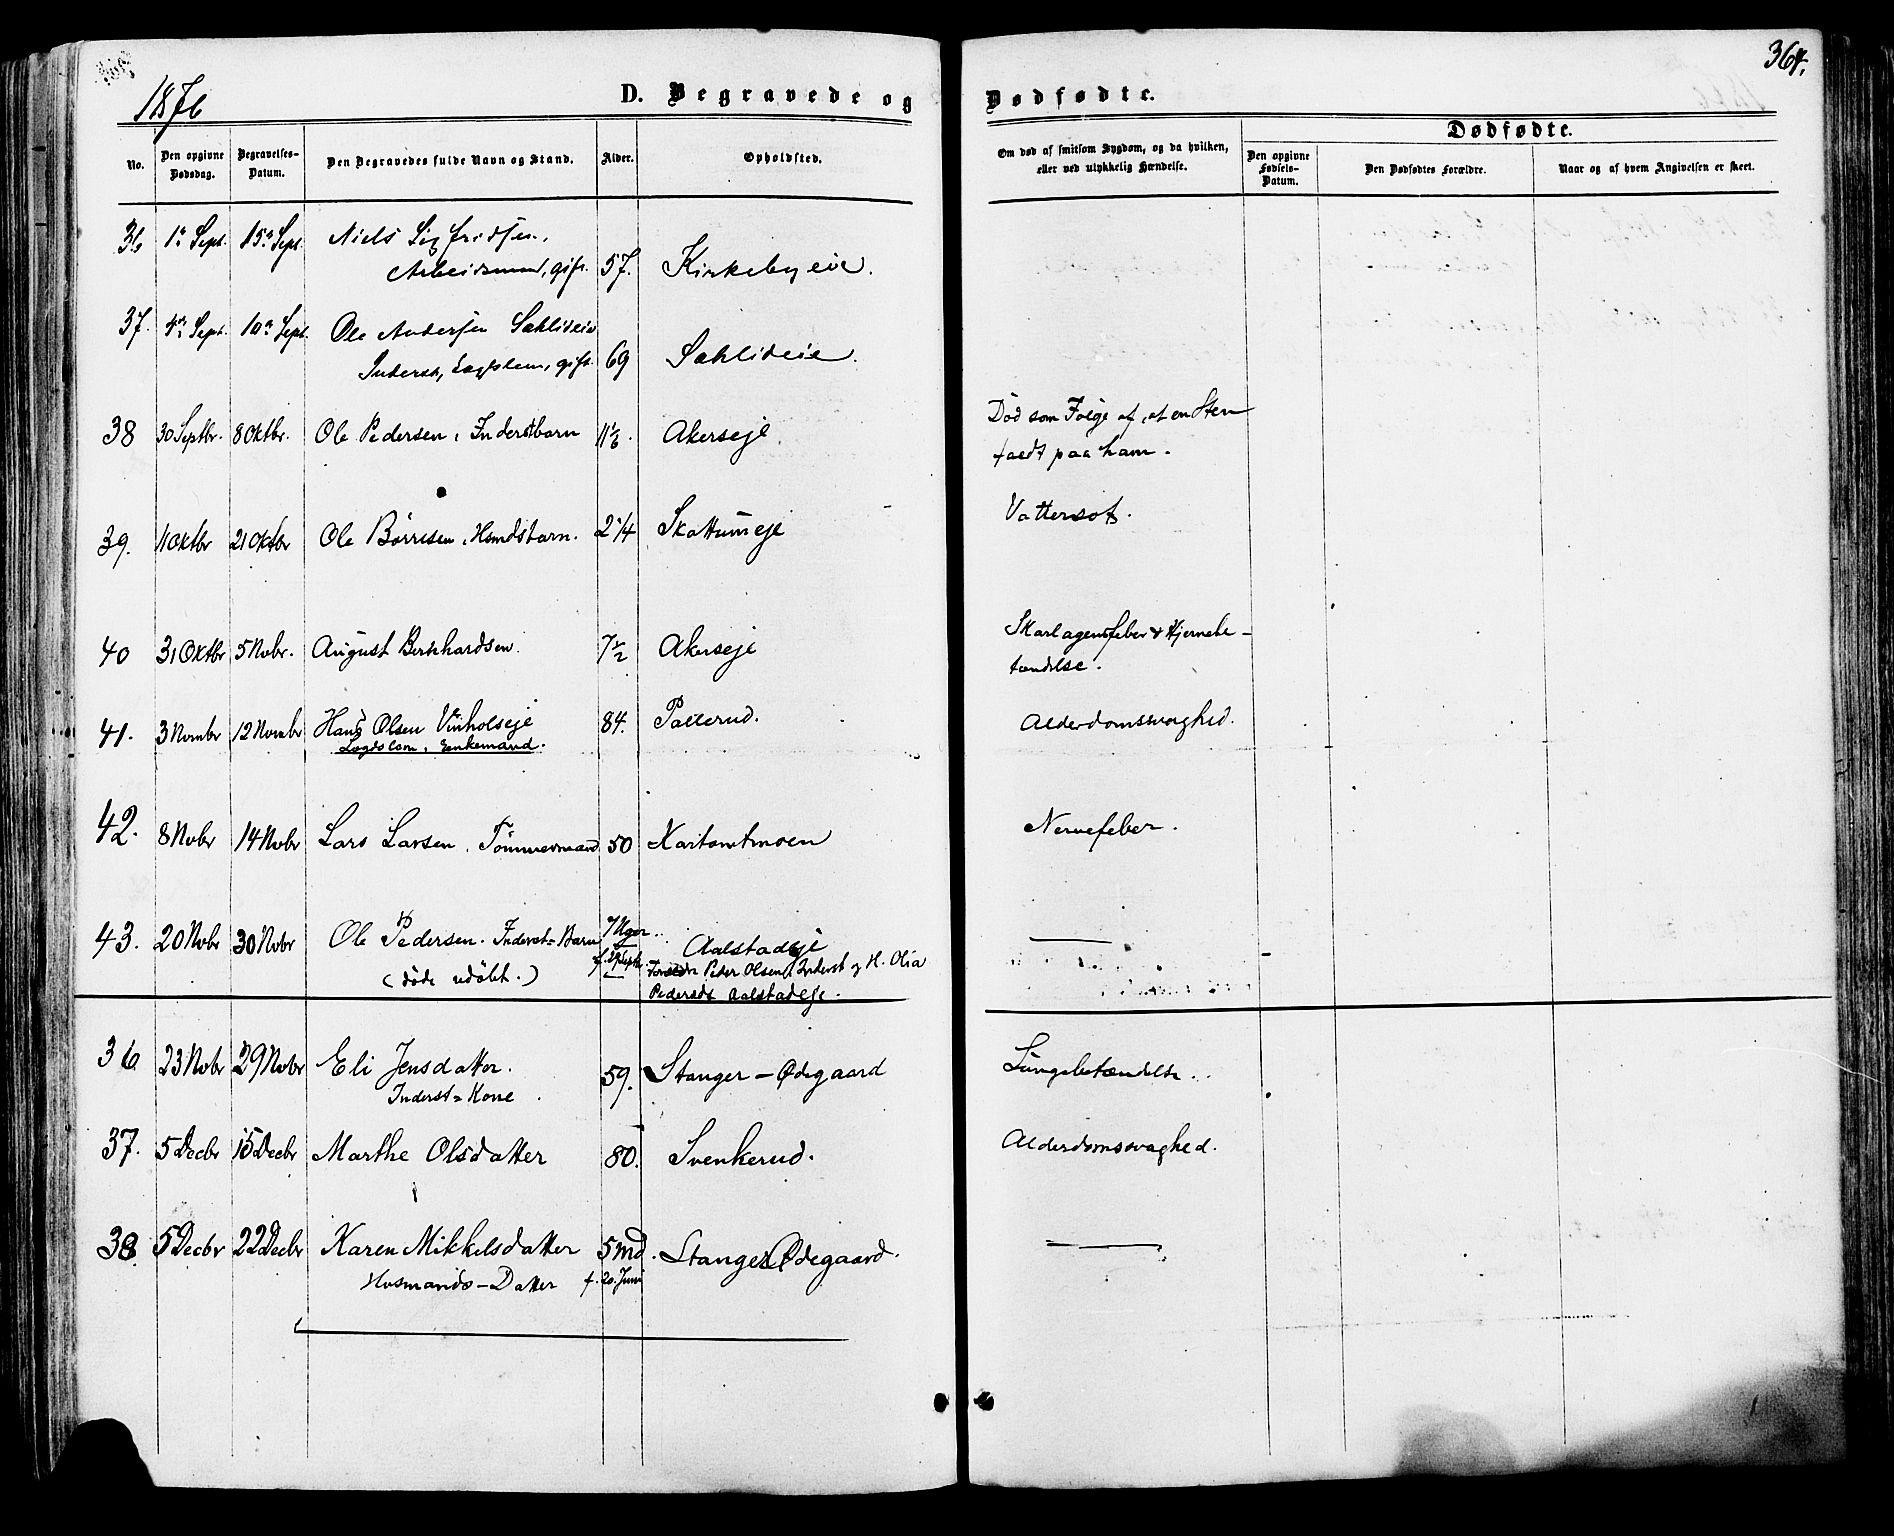 1876
364.
D. Begravede og Dødfødte.
Dødfødte.
No.
Den opgivne Dødsdag.
Begravelses-Datum.
Den Begravedes fulde Navn og Stand.
Alder.
Opholdsted.
Om død af smitsom Sygdom, og da hvilken, eller ved ulykkelig Hændelse.
Den opgivne Fødsels-Datum.
Den Dødfødtes Forældre.
Naar og af hvem Angivelsen er skeet.
36 1ste Sept. 15de Sept. Niels Sigfridsen,
Arbeidsmand, gift. 57. Kirkebyeie.
37. 4de Sept. 10de Sept. Ole Andersen Sæhlieie
Inderst, Lægdslem, gift. 69 Sæhlieie.
38 30 Septbr. 8 Oktbr. Ole Pedersen, Inderstbarn 11 1/6. Akerseje. Død som Følge af, at en Sten
faldt paa ham.
39. 11 Oktbr 21 Oktbr Ole Børresen, Hsmdsbarn. 2 1/4 Skattumeje Vattersot.
40 31 Oktbr 5 Nobr. August Bernhardsen. 7 1/2 Akerseje Skarlagensfeber & Hjernebe-
tændelse.
41. 3 Novmbr 12 Novmbr Hans Olsen Vinholseje 84. Pallerud. Alderdomssvaghed.
Lægdslem, Enkemand.
42. 8 Nobr 14 Nobr Lars Larsen, Tømmermand 50 Kartomtmoen Nervefeber.
43. 20 Nobr 30 Nobr Ole Pedersen. Inderst=Barn 7 Uger. Aalstadeje
(døde udøbt.) f. 29 Septr. Forældre Peder Olsen, Inderst og H. Olia
Pedersdt Aalstadeje.
36 23 Nobr 29 Nobr Eli Jensdatter. 59. Stanger-Ødegaard Lungebetændelse.
Inderst=Kone.
37. 5 Decbr 15 Decbr Marthe Olsdatter 80. Svenkerud. Alderdomssvaghed.
38. 5 Decbr 22 Decbr Karen Mikkelsdatter 5 Md. Stanger Ødegaard.
Husmands-Datter f. 20. Juni